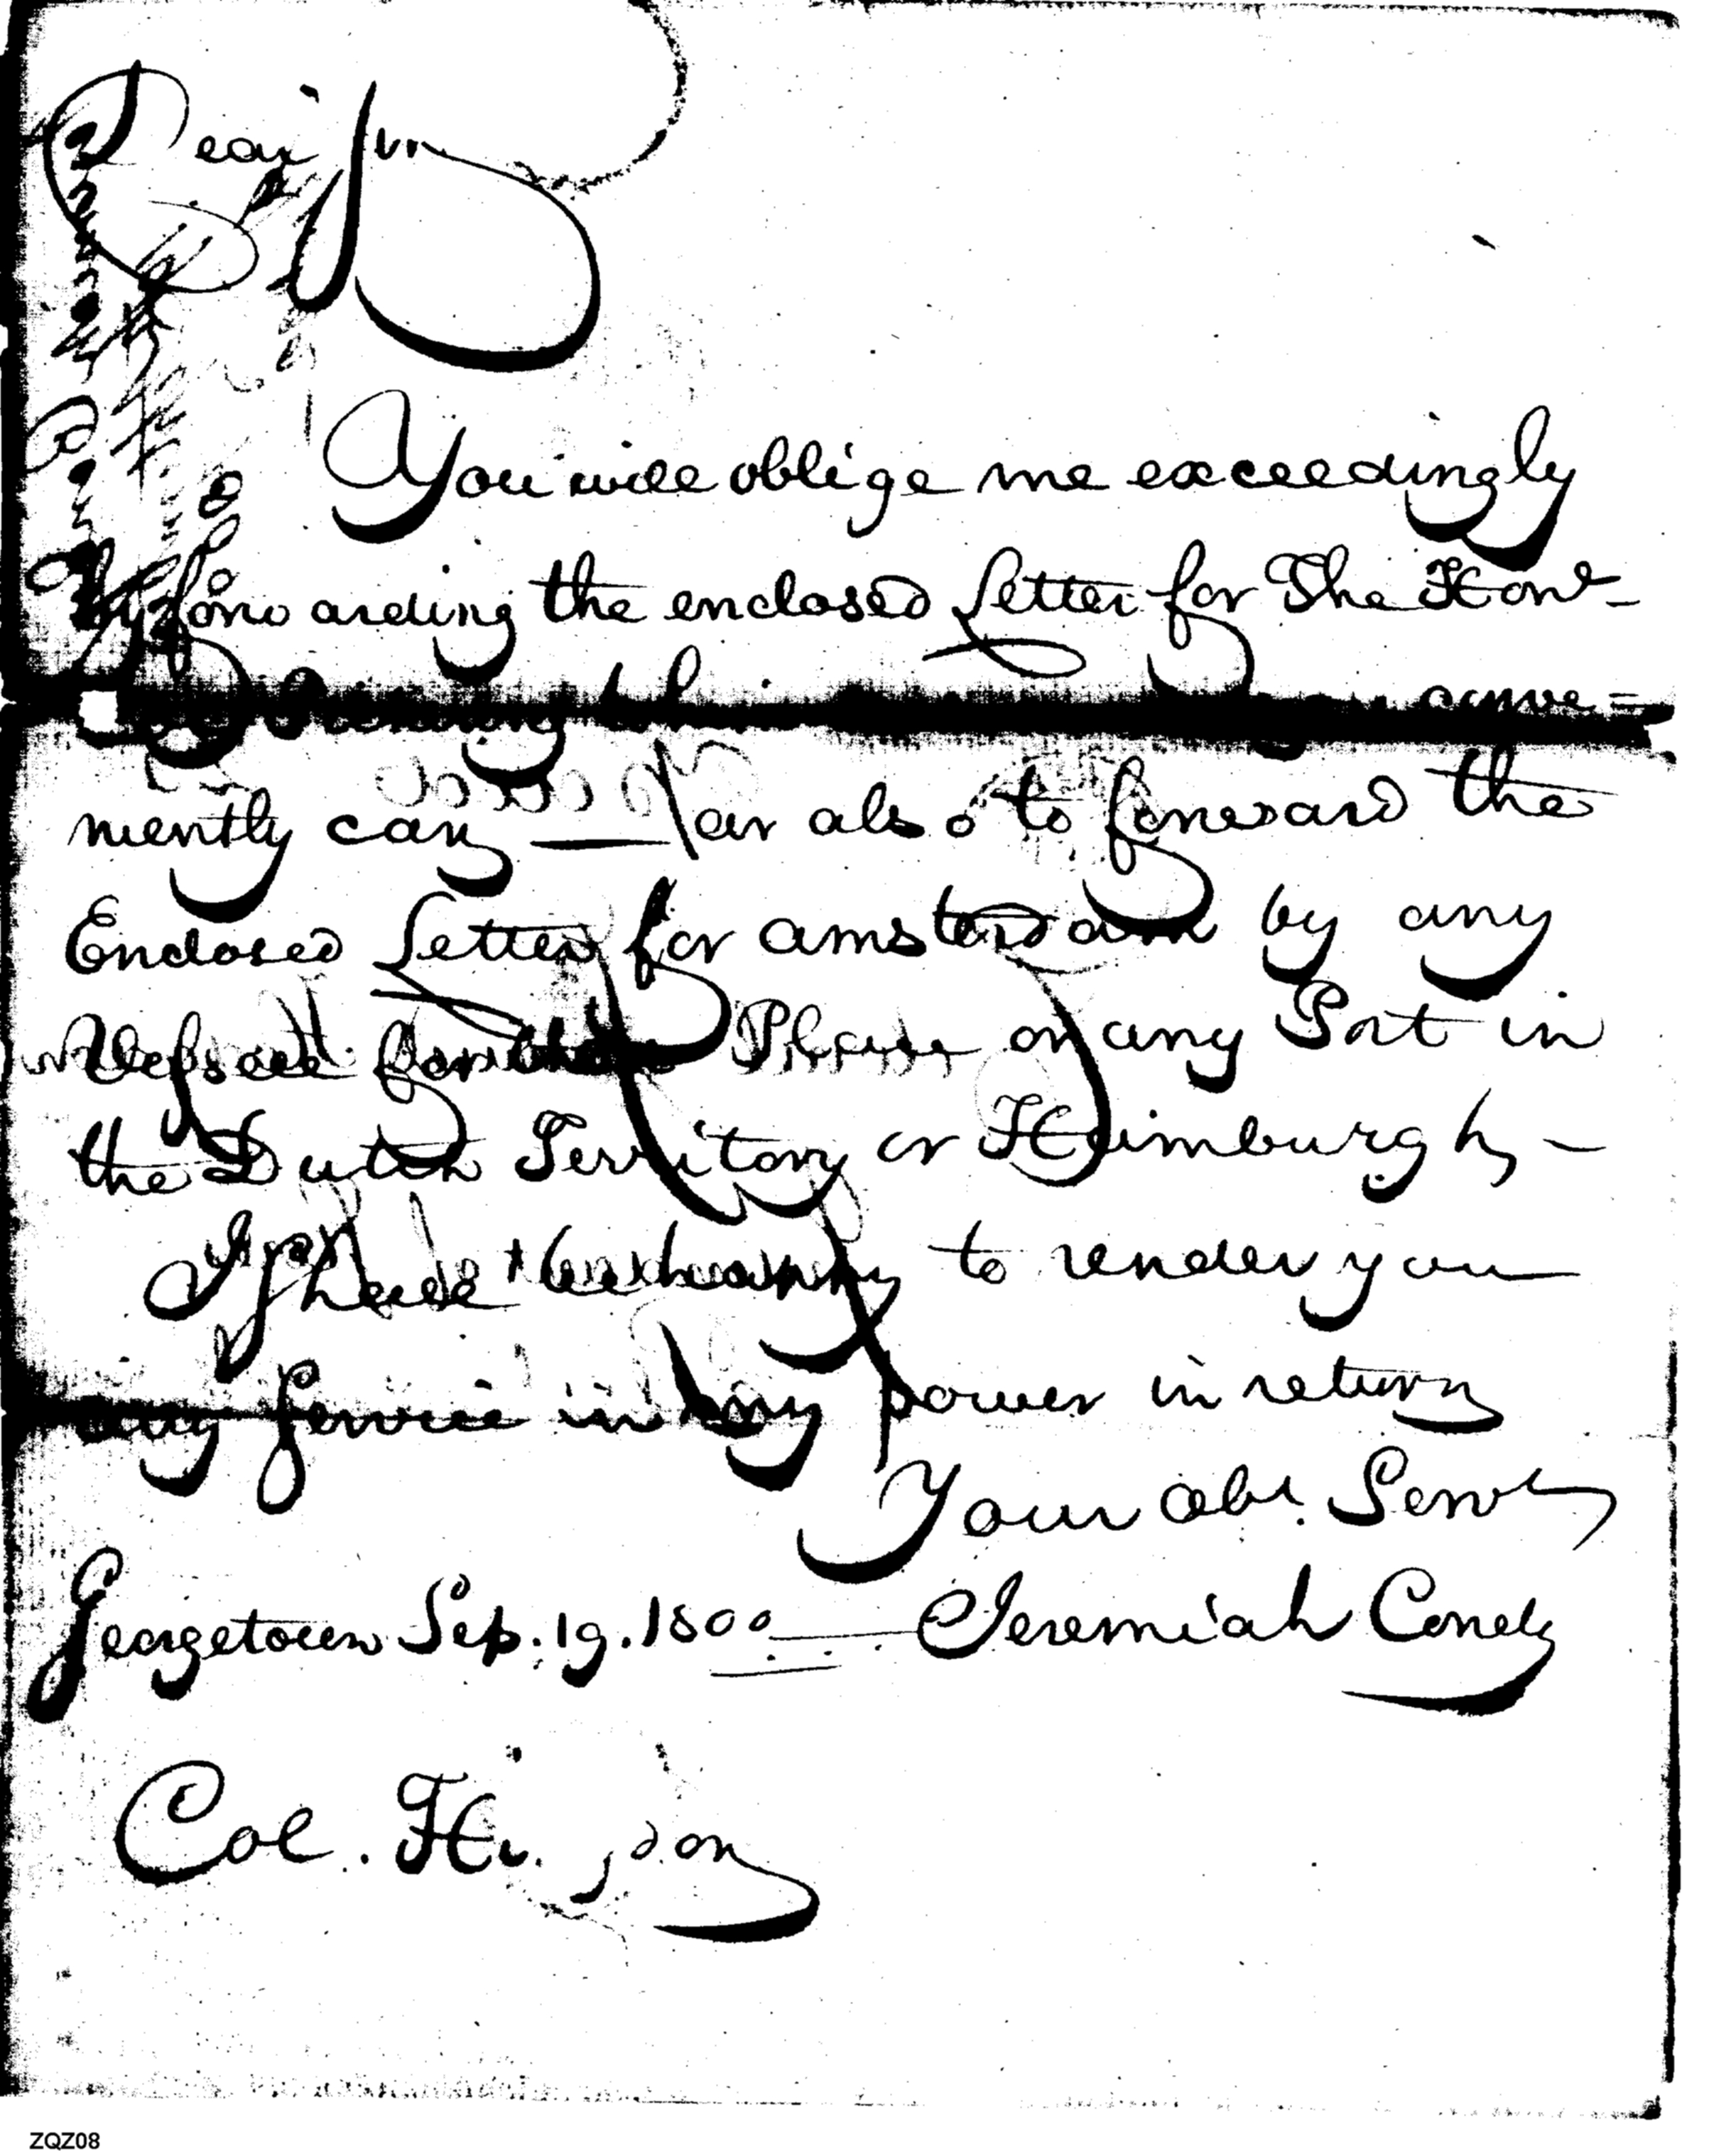 Dear Sir
You will oblige me exceedingly
by forwarding the enclosed Letter for The Honl-
conve=
niently can — as also to forward the
Enclosed Letter for amsterdam by any
Vessel for that Place or any Port in
the Dutch Territory or Hamburgh, -
I shall be happy to render you
any Service in my power in return
Your obt. Servt
Georgetown Sep. 19. 1800 — Jeremiah Condy
Col.
ZQZ08